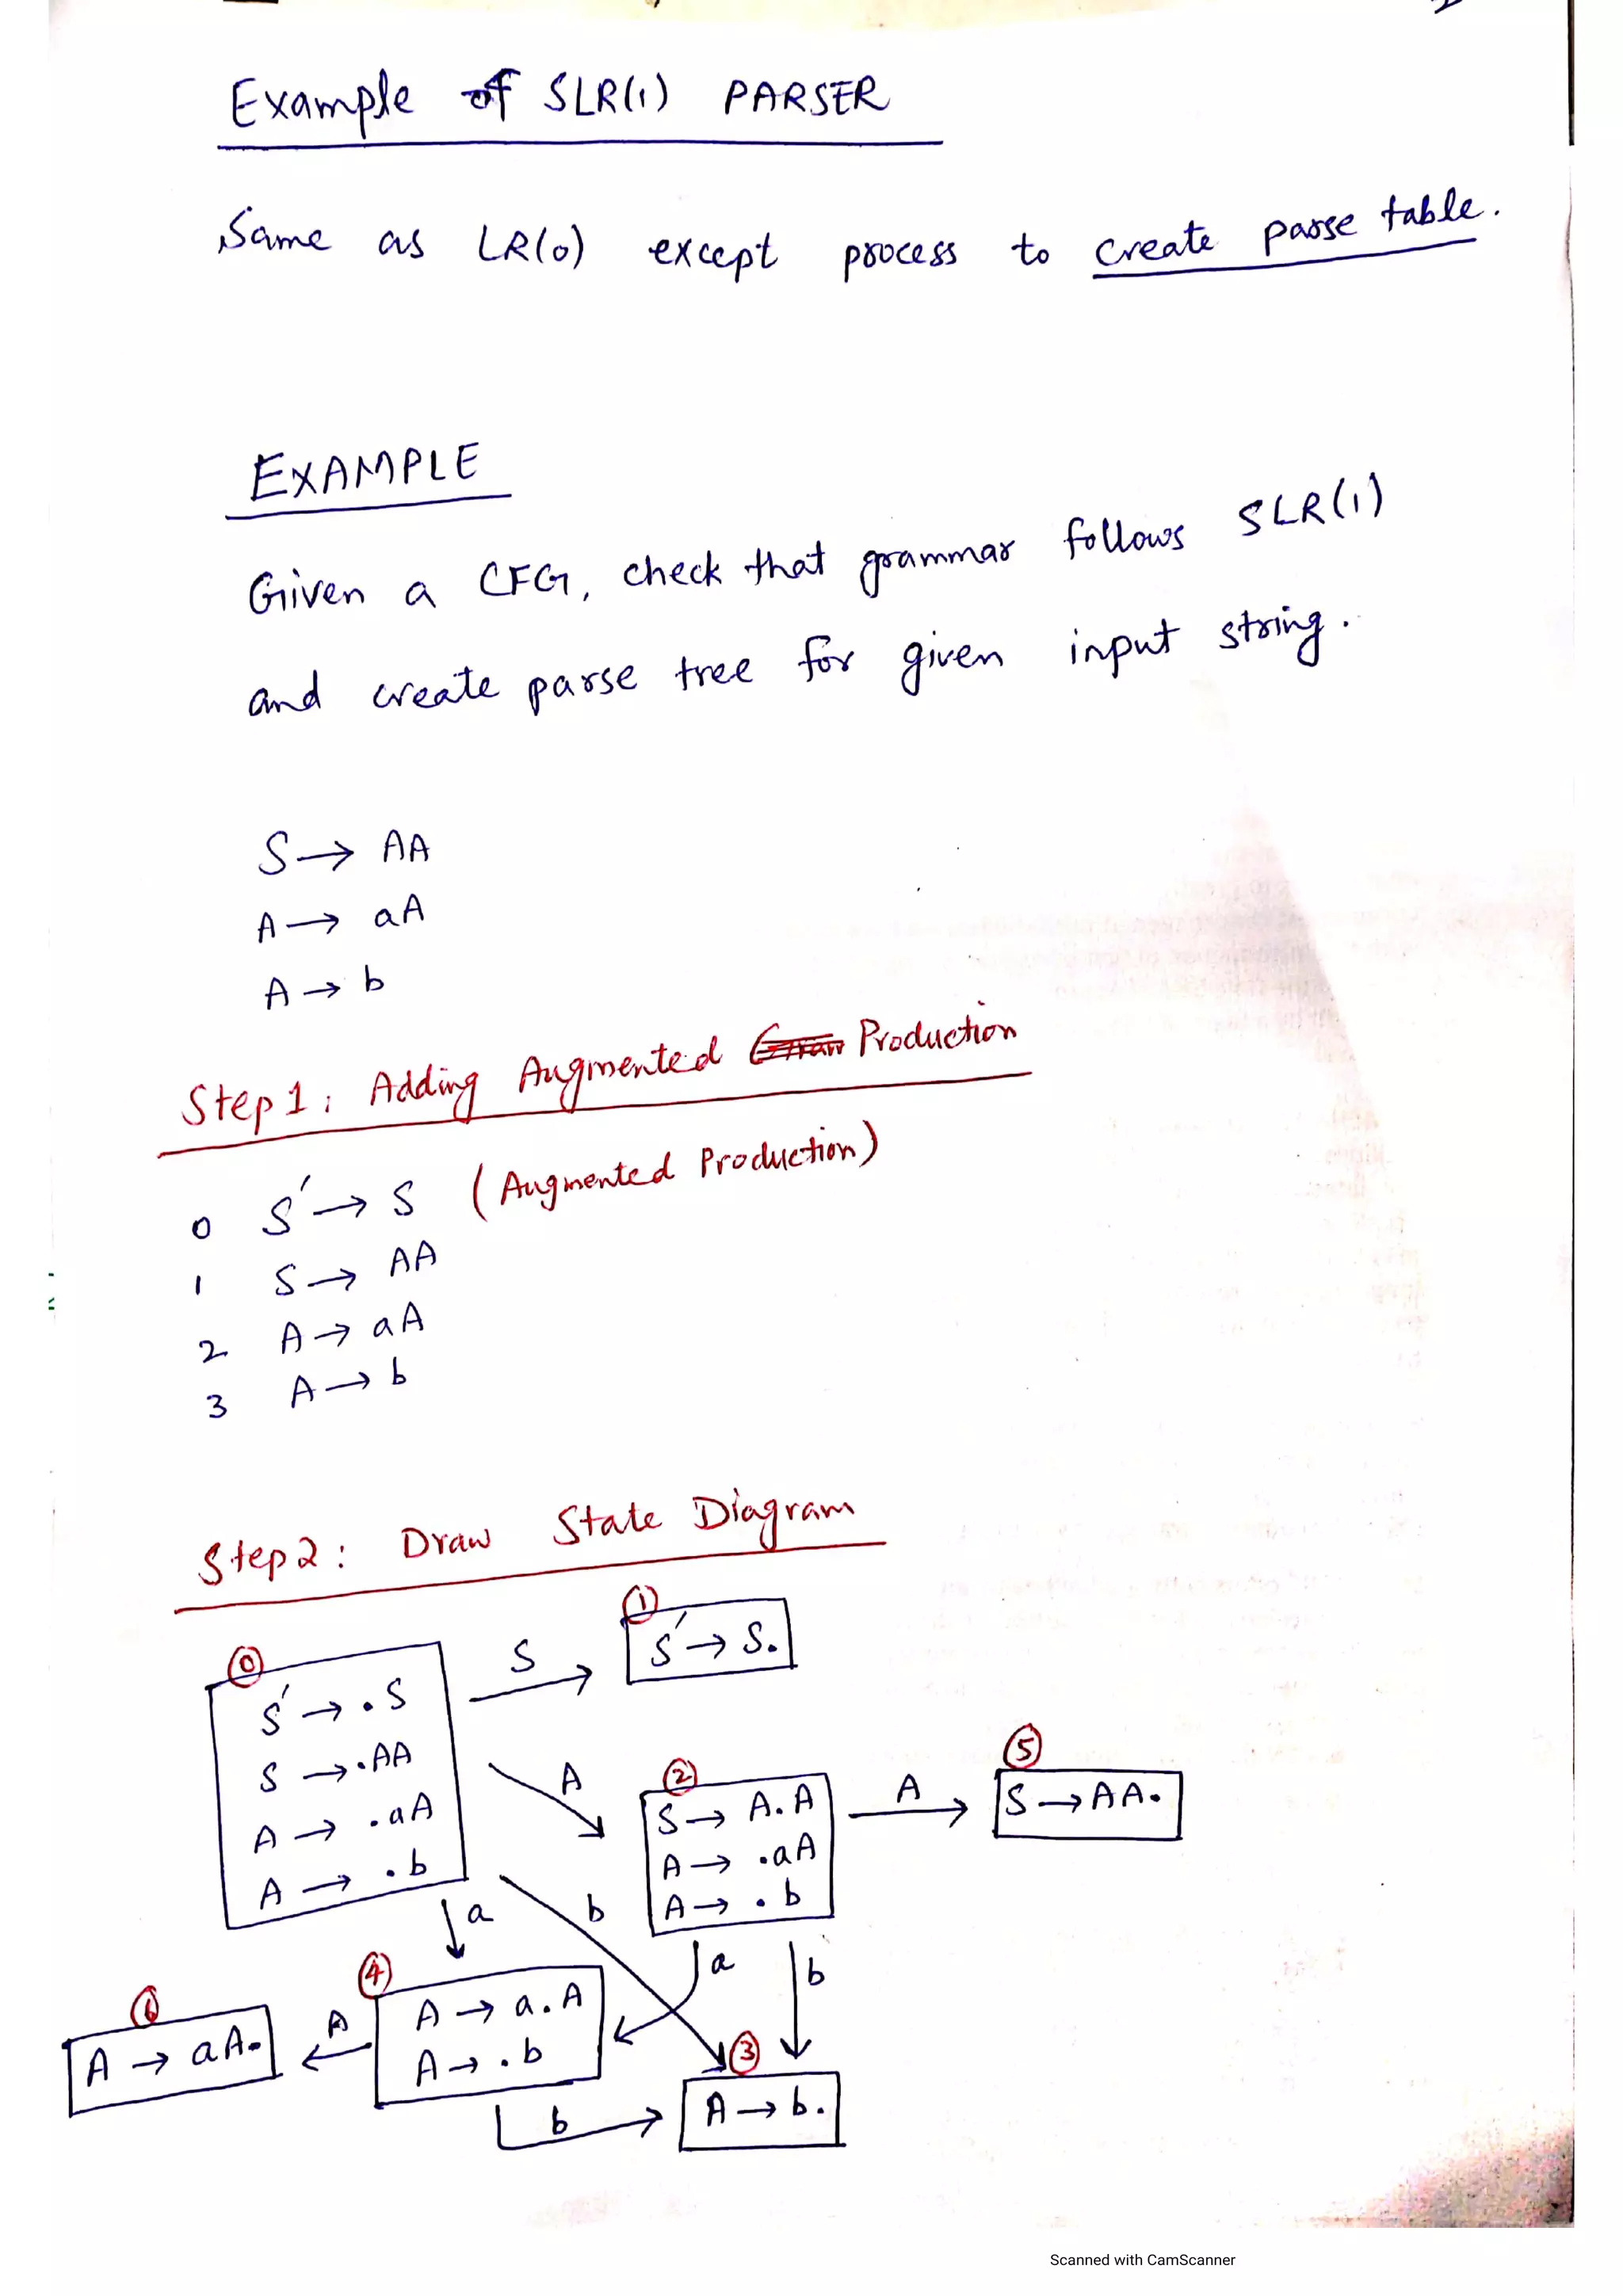 Example of SLR(1) PARSER
Same as LR(0) except process to create parse table.
EXAMPLE
Given a CFG, check that grammar follows SLR(1)
and create parse tree for given input string.
S → AA
A → aA
A → b
Step 1: Adding Augmented Production
0 S' → S (Augmented Production)
1 S → AA
2 A → aA
3 A → b
Step 2: Draw State Diagram
0
S' → .S
S → .AA
A → .aA
A → .b
S
1
S' → S.
A
2
S → A.A
A → .aA
A → .b
A
5
S → AA.
a
b
a
b
4
A → a.A
A → .b
A
6
A → aA.
b
3
A → b.
Scanned with CamScanner